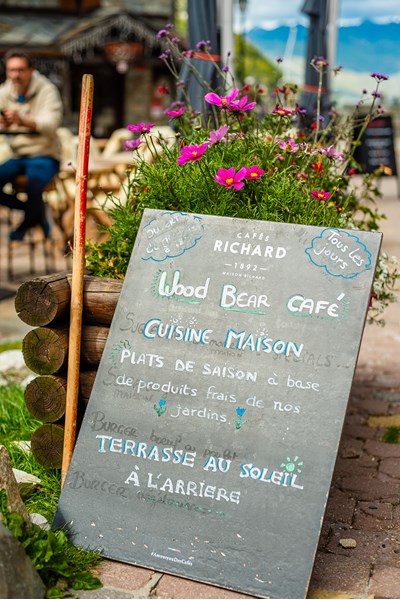 CAFÉS
RICHARD
1892
MAISON RICHARD
Tous les
jours
Wood Bear Café
Cuisine Maison
PLATS DE SAISON à base
de produits frais de nos
jardins.
Burger
TERRASSE AU SOLEIL
À L'ARRIÈRE
Burger